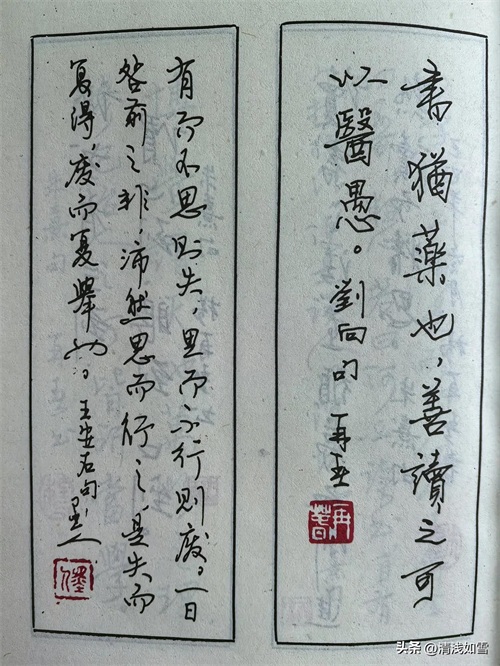 書猶藥也，善讀之可
以醫愚。劉向句
有而不思则失，思而不行则废。一日
咎前之非，沛然思而行之是失而
复得，废而复舉也。王安石句
头条 @清浅如雪